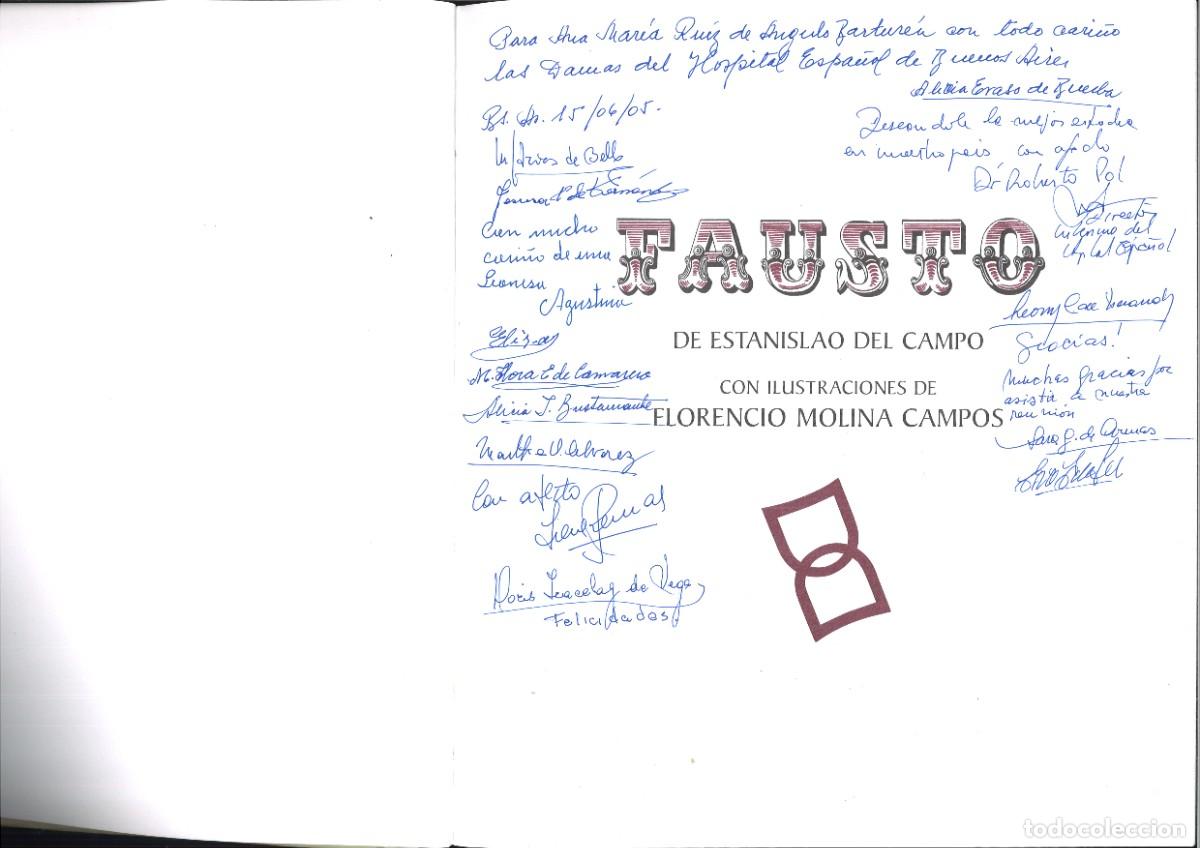 Para Ana María Ruiz de Angulo Barturén con todo cariño
las Damas del Hospital Español de Buenos Aires
Alicia Eraso de
Bs. As. 15/06/05.
de Bello
Con mucho
cariño de una
Leonesa
Agustina
M. Flora E. de Camarero
Alicia T. Bustamante
Martha V. Alvarez
Con afecto
Irene
Doris de Vega
Felicidades
Deseandole la mejor estadia
en nuestro pais con afecto
Dr Roberto Pol
Director
del
Español
Gracias!
Muchas gracias por
asistir a nuestra
reunión
Sara G. de Arenas
FAUSTO
DE ESTANISLAO DEL CAMPO
CON ILUSTRACIONES DE
FLORENCIO MOLINA CAMPOS
todocoleccion